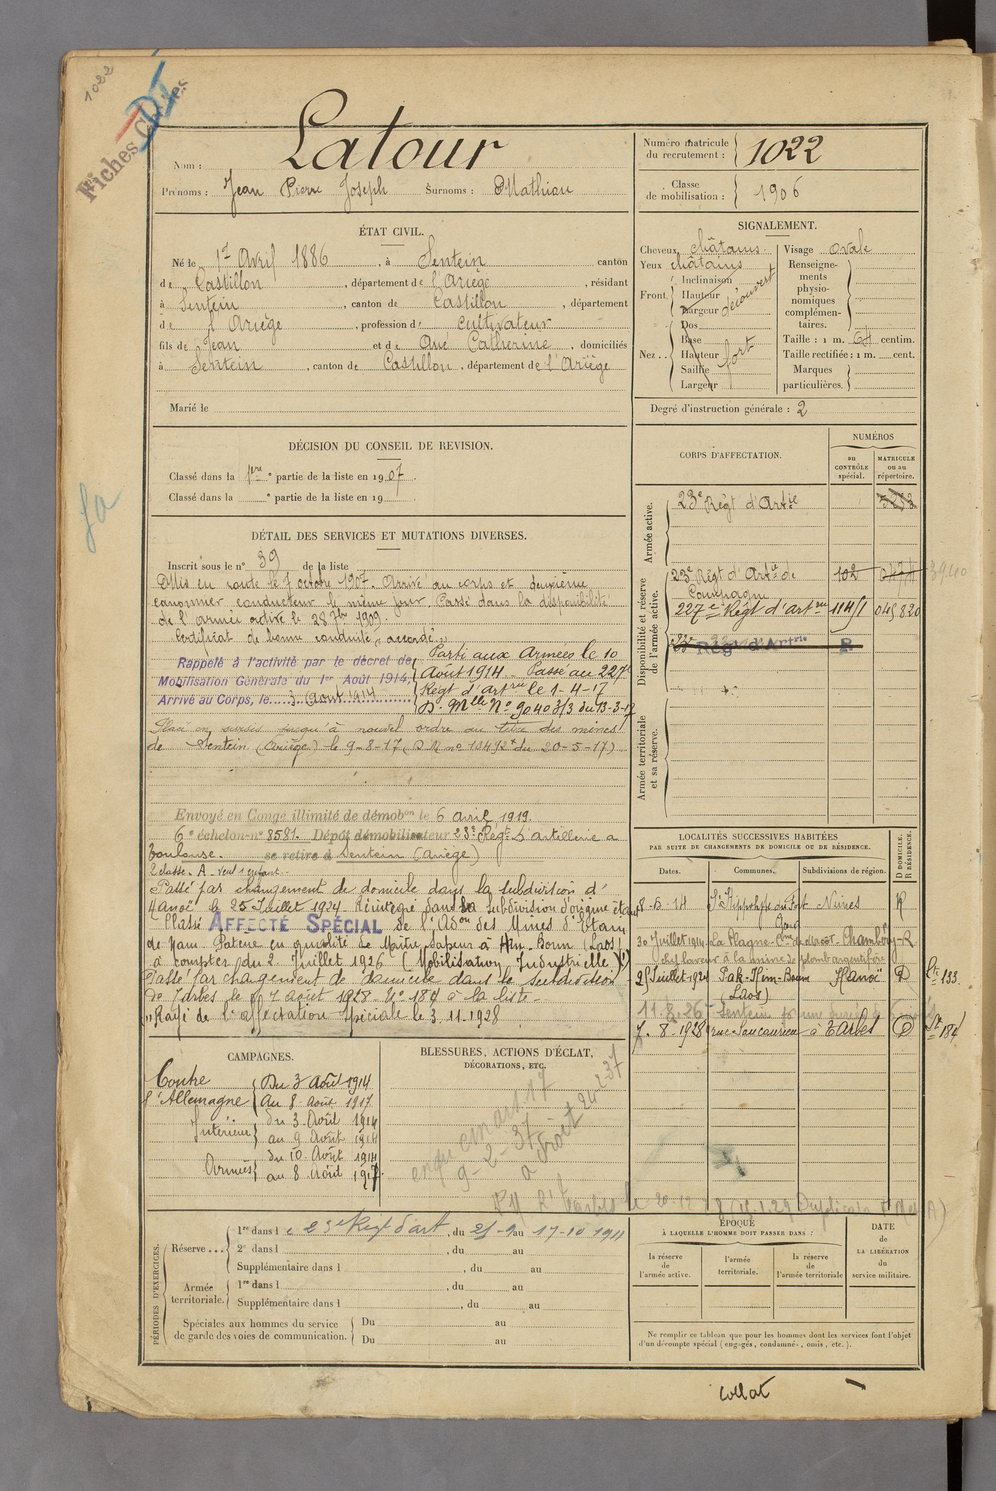 1022
Fiches
Nom : Latour
Prénoms : Jean Pierre Joseph Surnoms : Mathieu
Numéro matricule du recrutement : 1022
Classe de mobilisation : 1906
ÉTAT CIVIL.
Né le 1er Avril 1886, à Sentein canton
de Castillon, département de l'Ariège, résidant
à Sentein, canton de Castillon, département
de l'Ariège, profession de cultivateur
fils de Jean et de Ané Catherine, domiciliés
à Sentein, canton de Castillon, département de l'Ariège
Marié le
SIGNALEMENT.
Cheveux châtains
Yeux châtains
Front Inclinaison Hauteur Largeur découvert
Nez Dos Base Hauteur Saillie Largeur fort
Visage ovale
Renseignements physionomiques complémentaires.
Taille : 1 m. 64 centim.
Taille rectifiée : 1 m. cent.
Marques particulières.
Degré d'instruction générale : 2
DÉCISION DU CONSEIL DE REVISION.
Classé dans la 1ère partie de la liste en 1907.
Classé dans la e partie de la liste en 19
CORPS D'AFFECTATION.
NUMÉROS
au CONTRÔLE spécial.
MATRICULE ou au répertoire.
Armée active.
23e Régt d'Artie
Disponibilité et réserve de l'armée active.
23e Régt d'Artie de Campagne 102
227e Régt d'artrie
Régt d'Artrie R
Armée territoriale et sa réserve.
DÉTAIL DES SERVICES ET MUTATIONS DIVERSES.
Inscrit sous le n° 39 de la liste
Mis en route le 7 octobre 1907. Arrivé au corps et deuxième
canonnier conducteur le même jour. Passé dans la disponibilité
de l'armée active le 28 7bre 1909.
Certificat de bonne conduite "accordé"
Rappelé à l'activité par le décret de
Mobilisation Générale du 1er Août 1914,
Arrivé au Corps, le 3 Août 1914
Parti aux Armées le 10
Août 1914. Passé au 227e
Régt d'artrie le 1-4-17
D. Mlle N° 9040 3/3 du 13-3-17
Placé en sursis jusqu'à nouvel ordre au titre des mines
de Sentein (Ariège) le 9-8-17 (D M n° 13492 du 20-5-17)
Envoyé en Congé illimité de démobon le 6 avril 1919.
6e échelon - n° 8581. Dépôt démobilisateur 23e Régt d'artillerie à
Toulouse. se retire à Sentein (Ariège)
Passé par changement de domicile dans la subdivision d'
Hanoï le 25 Juillet 1924. Réintégré dans la subdivision d'origine
Classé AFFECTÉ SPÉCIAL de l'Adon des Mines d'Étain
de Nam Patène en qualité de Maître sapeur à Hin-Boun (Laos)
à compter du 2 Juillet 1926 (Mobilisation Industrielle)
Passé par changement de domicile dans la subdivision
de Tarbes le 7 Août 1928 - N° 184 à la liste -
Rayé de l'affectation spéciale le 3.11.1928
LOCALITÉS SUCCESSIVES HABITÉES
PAR SUITE DE CHANGEMENTS DE DOMICILE OU DE RÉSIDENCE.
Dates. Communes. Subdivisions de région. D DOMICILE. R RÉSIDENCE.
8-6-14 St Hippolyte du Fort Gard Nîmes R
30 Juillet 1914 La Plagne Chambéry R
chef laveur à la mine de plomb argentifère
25 Juillet 1924 Pak-Him-Boun (Laos) Hanoï D 133
11.8.26 Sentein
7.8.1928 à Tarbes D 184
CAMPAGNES.
Contre l'Allemagne Du 3 Août 1914
Au 8 Août 1917
Intérieur du 3 Août 1914
au 9 Août 1914
Armées du 10 Août 1914
au 8 Août 1917
BLESSURES, ACTIONS D'ÉCLAT,
DÉCORATIONS, ETC.
9-2-37
PÉRIODES D'EXERCICES.
Réserve... 1re dans le 23e Régt d'art, du 25-9 au 17-10 1911
2e dans l , du au
Supplémentaire dans l , du au
Armée territoriale. 1re dans l , du au
Supplémentaire dans l , du au
Spéciales aux hommes du service de garde des voies de communication. Du au
Du au
ÉPOQUE
À LAQUELLE L'HOMME DOIT PASSER DANS :
la réserve de l'armée active.
l'armée territoriale.
la réserve de l'armée territoriale
DATE DE LA LIBÉRATION du service militaire.
Ne remplir ce tableau que pour les hommes dont les services font l'objet
d'un décompte spécial (engagés, condamnés, omis, etc.).
collat